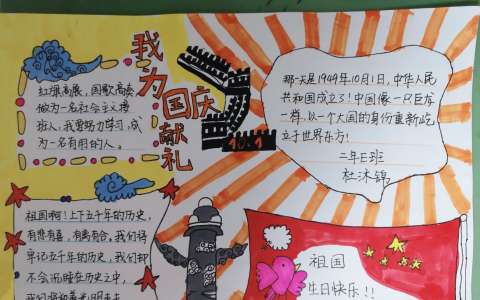 我为国庆献礼
红旗高展,国歌高奏
做为一名社会主义接
班人,我要努力学习,成
为一名有用的人。
10.1
那一天是1949年10月1日,中华人民
共和国成立了!中国像一只巨龙
一样,以一个大国的身份重新屹
立于世界东方!
二年日班
杜沐锦
祖国啊!上下五千年的历史,
有悲有喜,有离有合。我们将
牢记五千年的历史,我们却
不会沉睡在历史之中,
祖国
生日快乐!!